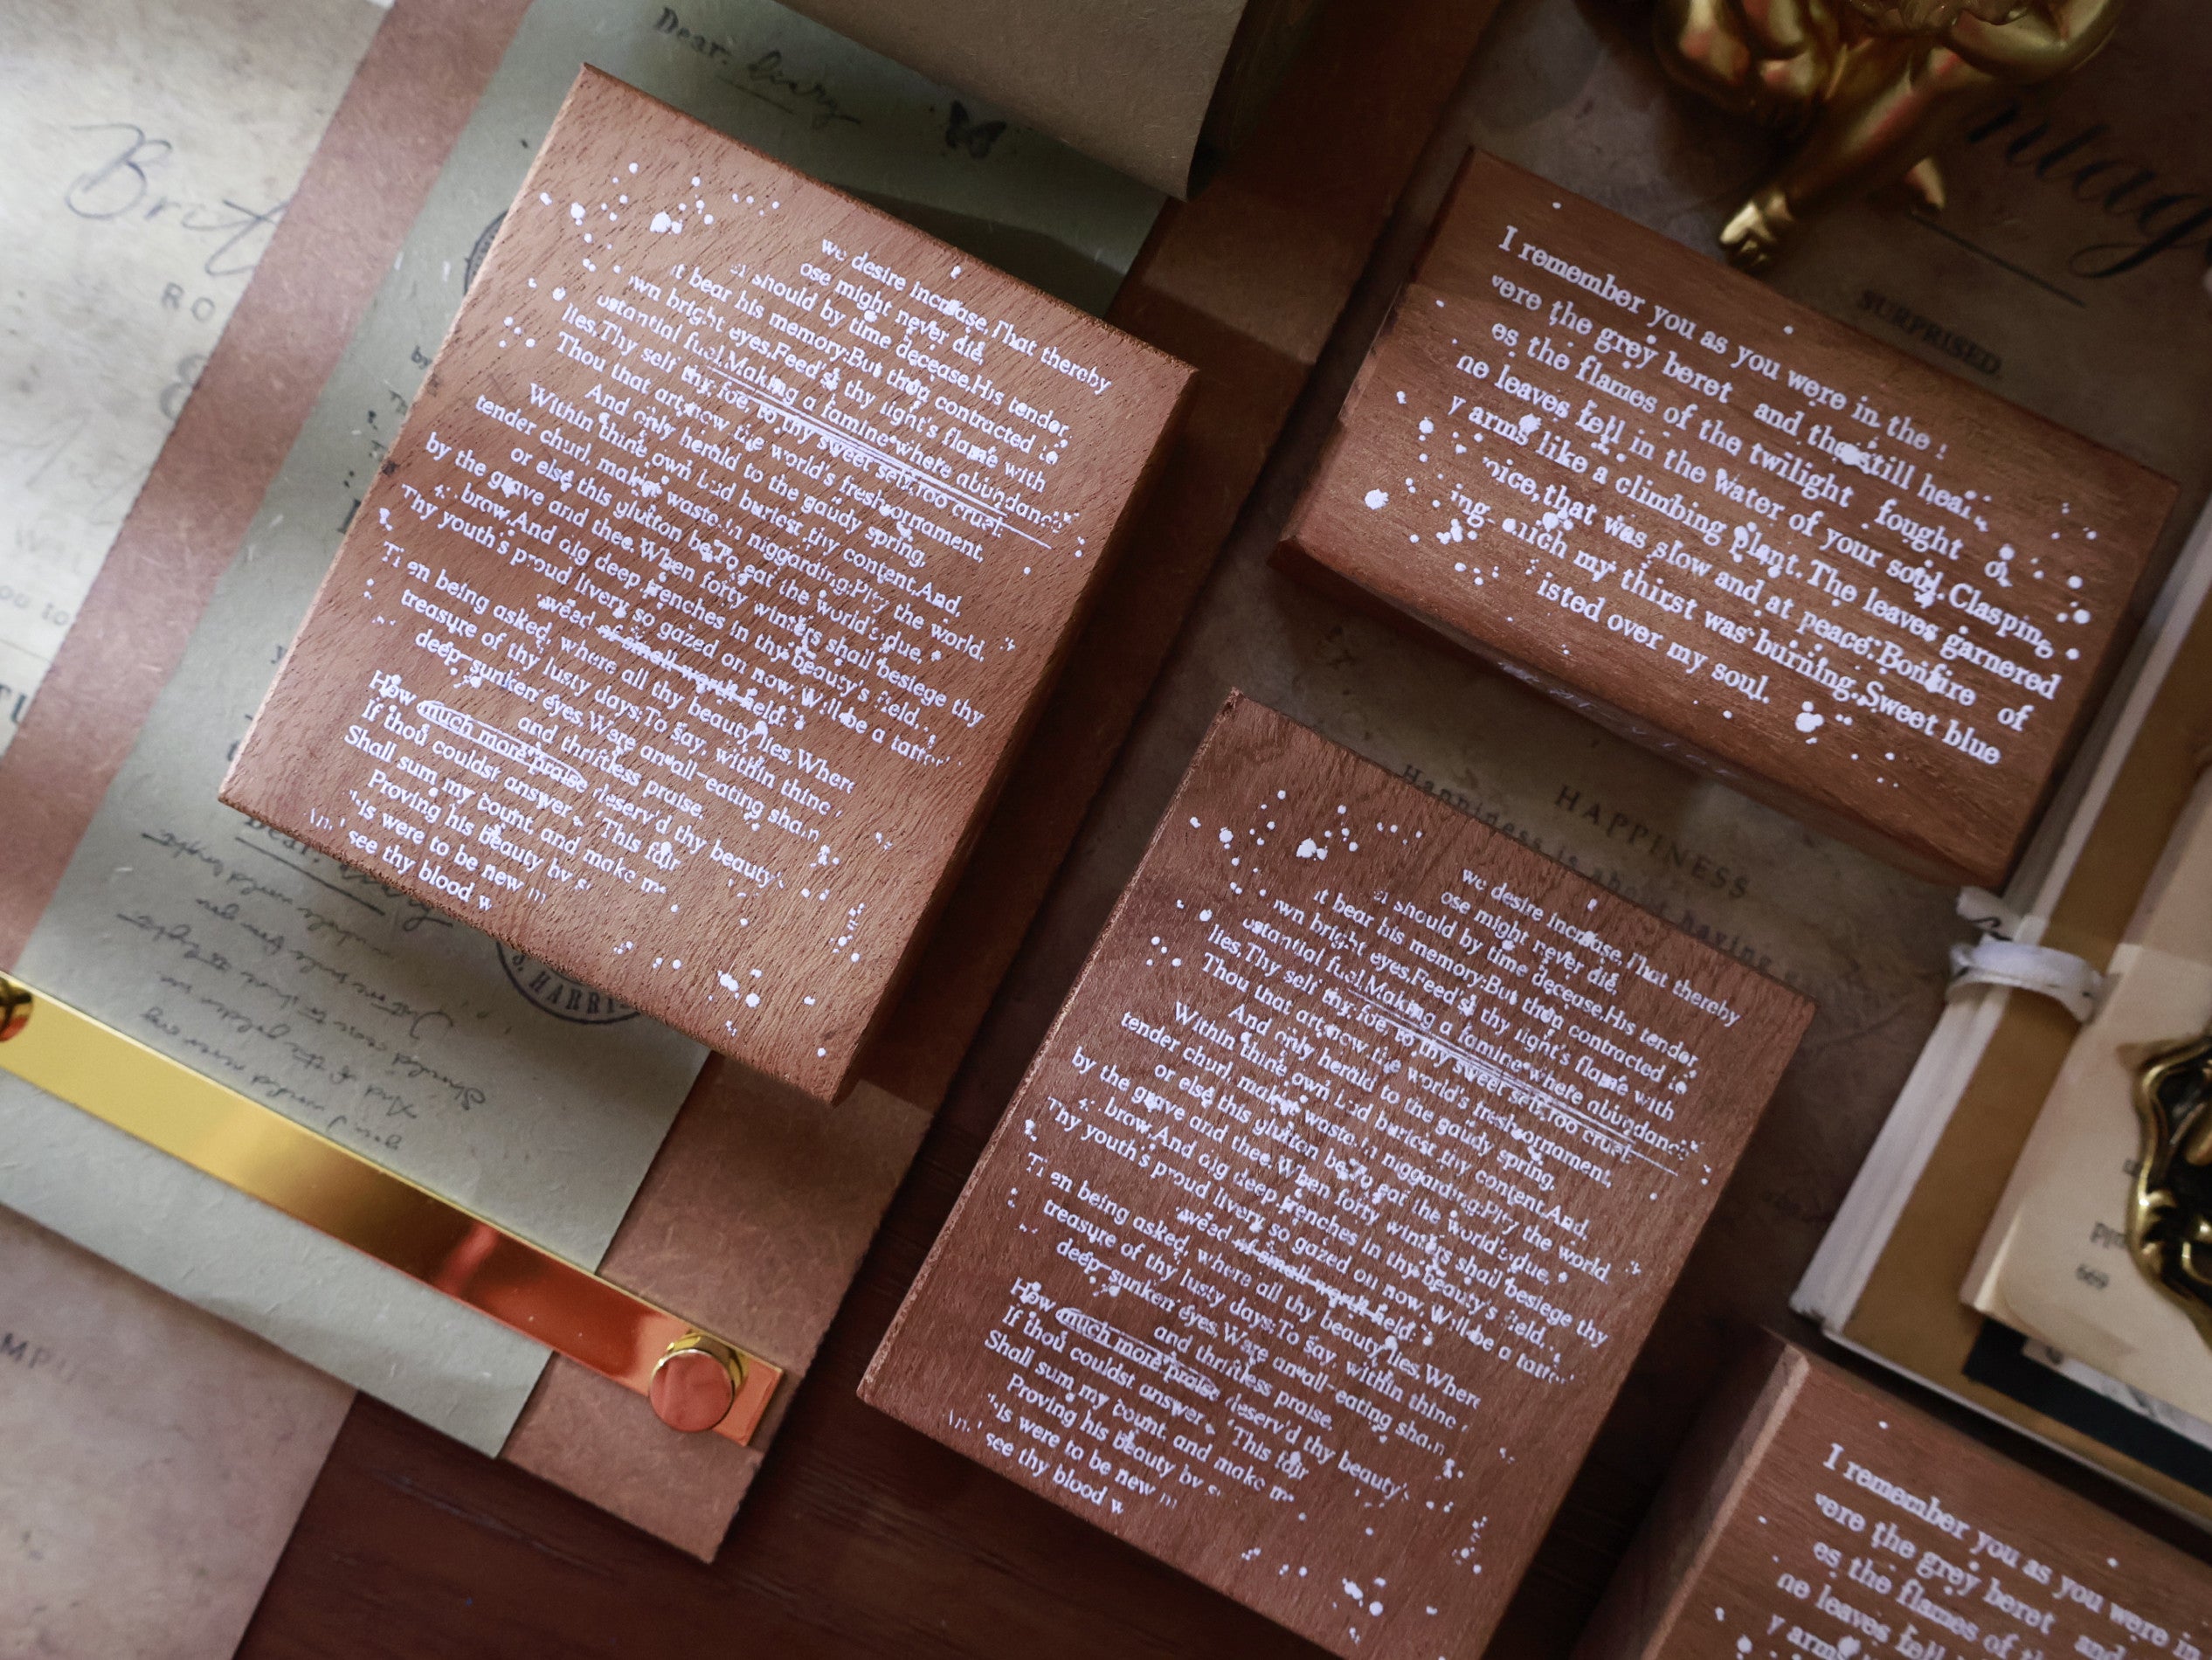 Dear. Diary
Brit
RO
we desire increase.That thereby
ose might never die.
should by time decease.His tender
it bear his memory:But thou contracted
wn bright eyes.Feed'st thy light's flame with
ustantial fuel.Making a famine where abundance
lies.Thy self thy foe to thy sweet self too cruel.
Thou that art now the world's fresh ornament.
And only herald to the gaudy spring.
Within thine own bud buriest thy content.And,
tender churl mak'st waste in niggarding:Pity the world.
or else this glutton be.To eat the world's due,
by the grave and thee.When forty winters shall besiege thy
brow.And dig deep trenches in thy beauty's field.
Thy youth's proud livery so gazed on now. Will be a tatte
weed of small worth held:
en being asked, where all thy beauty lies.Where
treasure of thy lusty days:To say, within thine
deep-sunken eyes.Were an all-eating sham
and thriftless praise.
How much more praise deserv'd thy beauty's
If thou couldst answer 'This fair
Shall sum my count, and make m
Proving his beauty by s
is were to be new
see thy blood w
Dear.
S. HARRI
ntag
SURPRISED
I remember you as you were in the
vere the grey beret and the still hear
es the flames of the twilight fought
ne leaves fell in the water of your soul.Clasping
y arms like a climbing plant.The leaves garnered
oice,that was slow and at peace:Bonfire of
ing which my thirst was burning.Sweet blue
isted over my soul.
HAPPINESS
Happiness is about having
we desire increase.That thereby
ose might never die.
should by time decease.His tender
it bear his memory:But thou contracted
wn bright eyes.Feed'st thy light's flame with
ustantial fuel.Making a famine where abundance
lies.Thy self thy foe to thy sweet self too cruel.
Thou that art now the world's fresh ornament.
And only herald to the gaudy spring.
Within thine own bud buriest thy content.And,
tender churl mak'st waste in niggarding:Pity the world.
or else this glutton be.To eat the world's due,
by the grave and thee.When forty winters shall besiege thy
brow.And dig deep trenches in thy beauty's field.
Thy youth's proud livery so gazed on now. Will be a tatte
weed of small worth held:
en being asked, where all thy beauty lies.Where
treasure of thy lusty days:To say, within thine
deep-sunken eyes.Were an all-eating sham
and thriftless praise.
How much more praise deserv'd thy beauty's
If thou couldst answer 'This fair
Shall sum my count, and make m
Proving his beauty by s
is were to be new
see thy blood w
669
I remember you as you were in
vere the grey beret and
es the flames of th
ne leaves fell in
y arms li